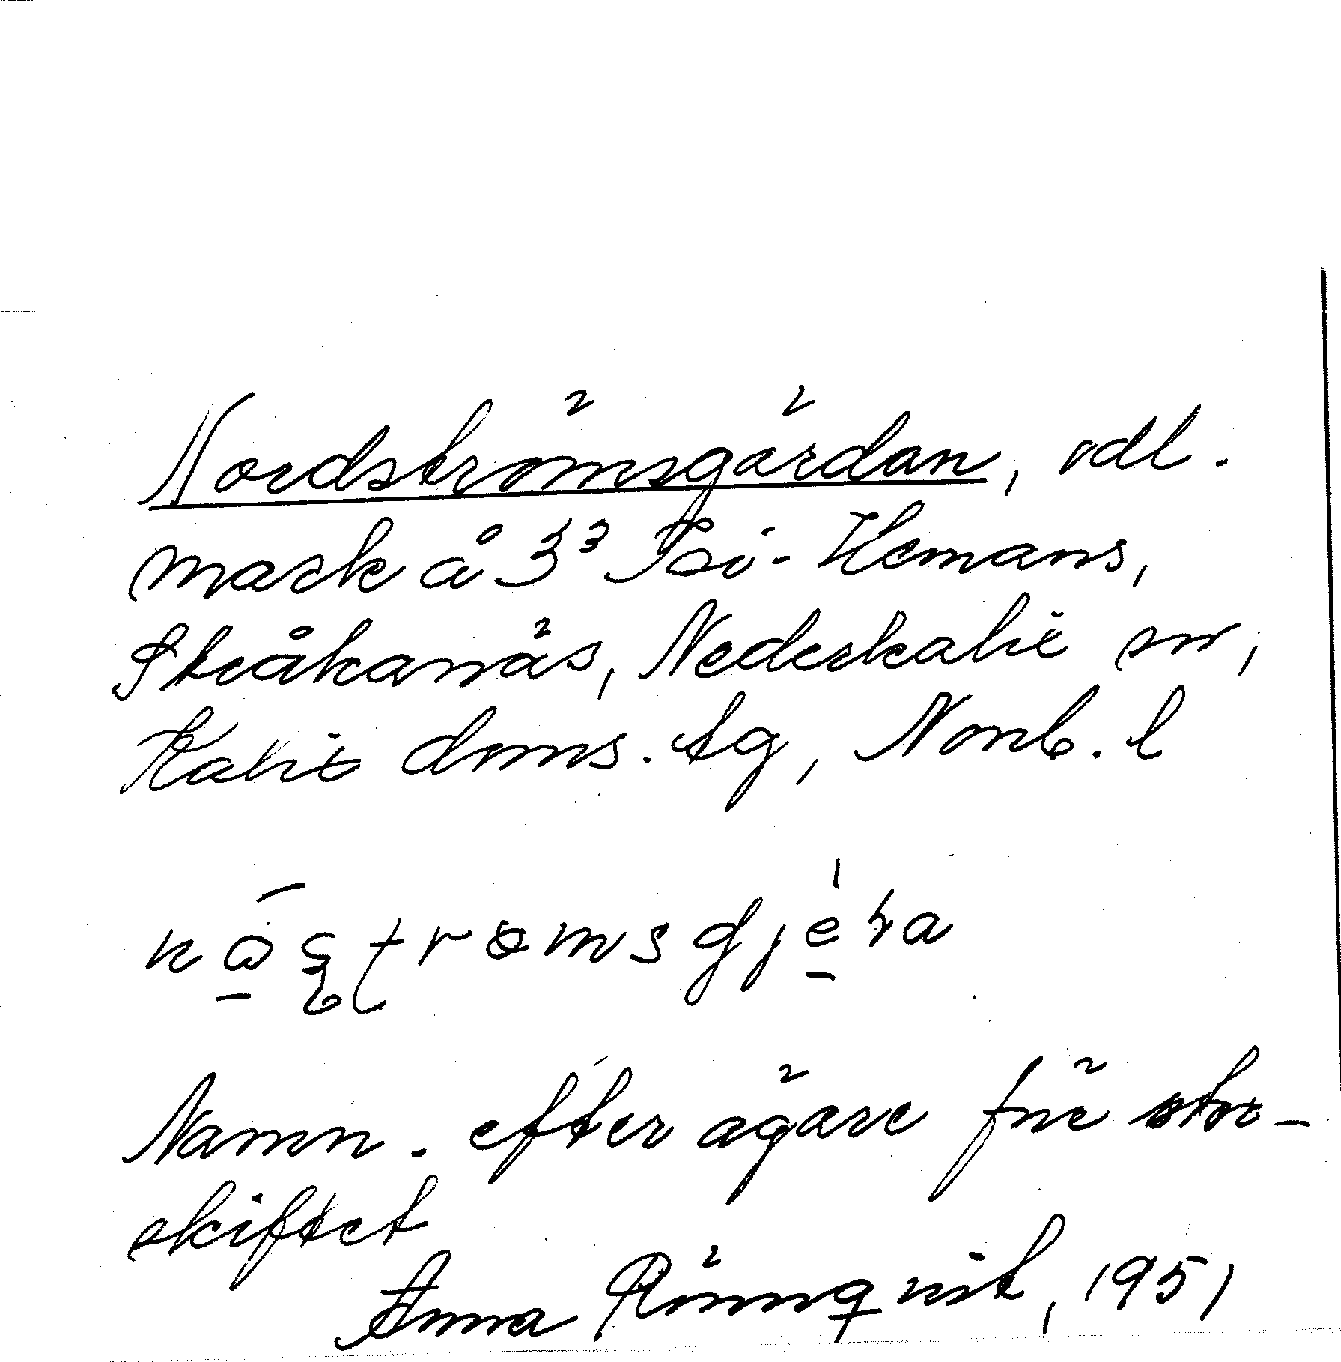 Nordströmsgärdan, odl.
mark å 3³ Hemans,
Stråkanäs, Nederkalix sn,
Kalix doms. tg, Norrb. l
Namn. efter ägare före stor-
skiftet
Anna Rönnqvist, 1951